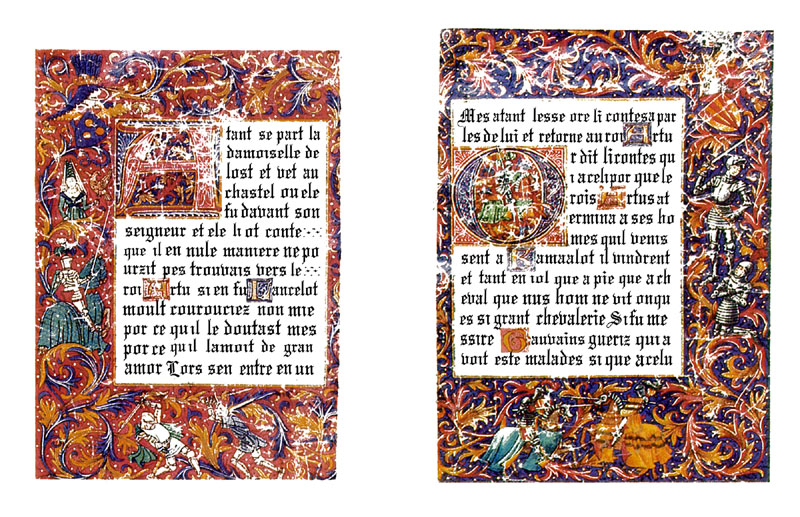 tant se part la
damoiselle de
lost et vet au
chastel ou ele
fu davant son
seigneur et ele li ot conte
que il en nule maniere ne po
urzit pes trouvais vers le
roi Artu si en fu Lancelot
moult courouciez non mie
por ce qu il le doutast mes
por ce qu il lamoit de gran
amor Lors sen entre en un
Mes atant lesse ore li contes a par
ler de lui et retorne au roy Artu
r dit li contes qu
i aceli por que le
rois Artus at
ermina a ses ho
mes quil venis
sent a Kamaalot il vindrent
et tant en iol que a pie que a ch
eval que nus hom ne vit onqu
es si grant chevalerie Si fu me
ssire Gauvains gueriz qui a
voit este malades si que a celu